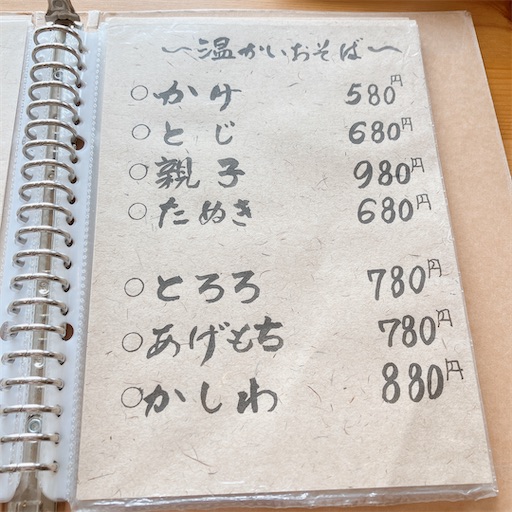 〜温かいおそば〜
○かけ 580円
○とじ 680円
○親子 980円
○たぬき 680円
○とろろ 780円
○あげもち 780円
○かしわ 880円